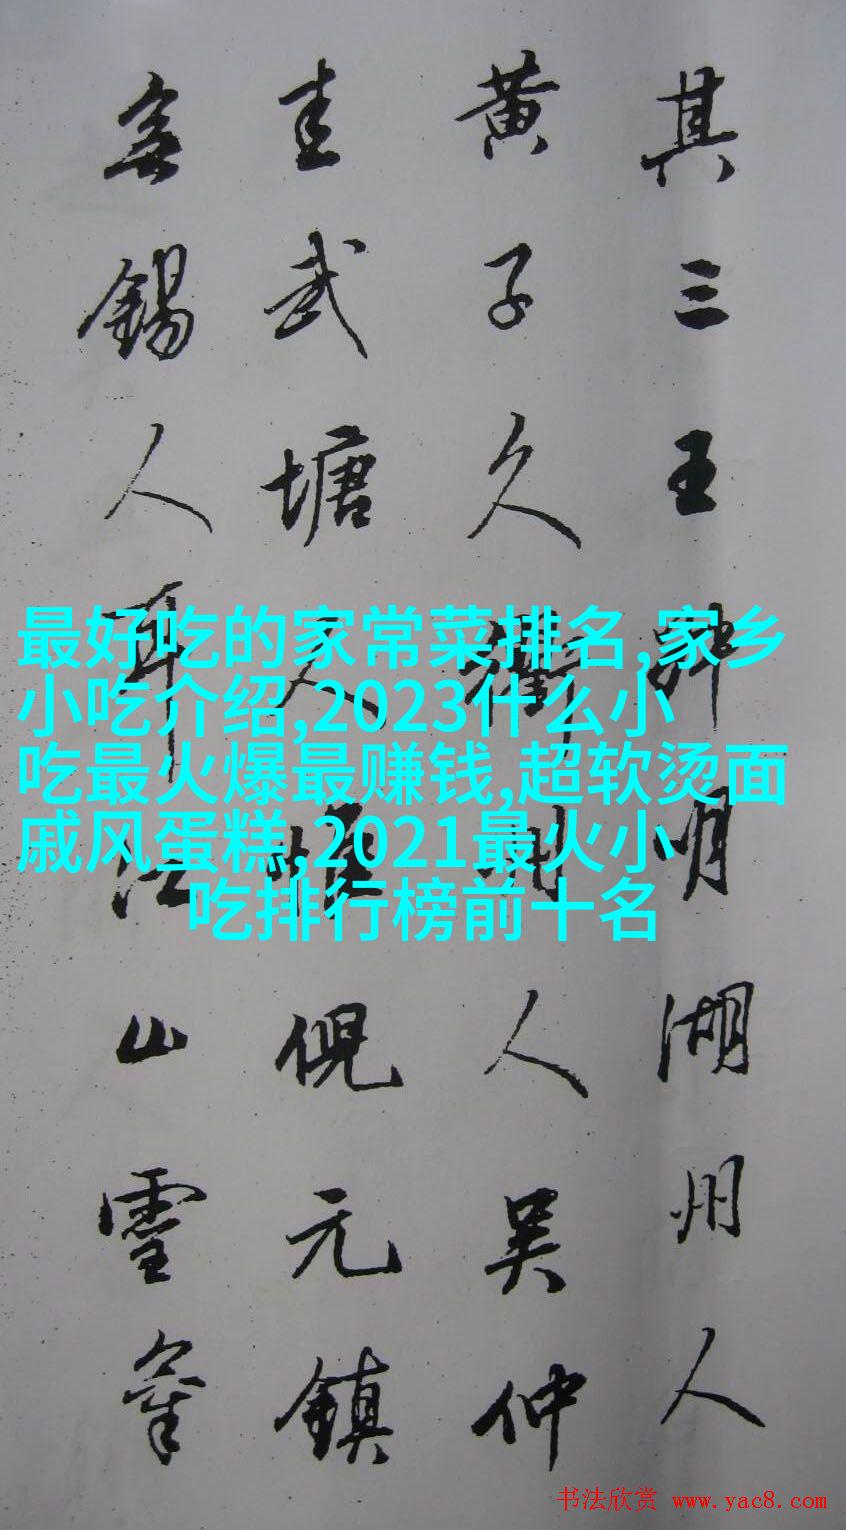 其三王叔明湖州人
黄子久衢州人吴仲
圭武塘人惟倪元镇
无锡人耳江山灵气
最好吃的家常菜排名,家乡
小吃介绍,2023什么小
吃最火爆最赚钱,超软烫面
戚风蛋糕,2021最火小
吃排行榜前十名
书法欣赏 www.yac8.com